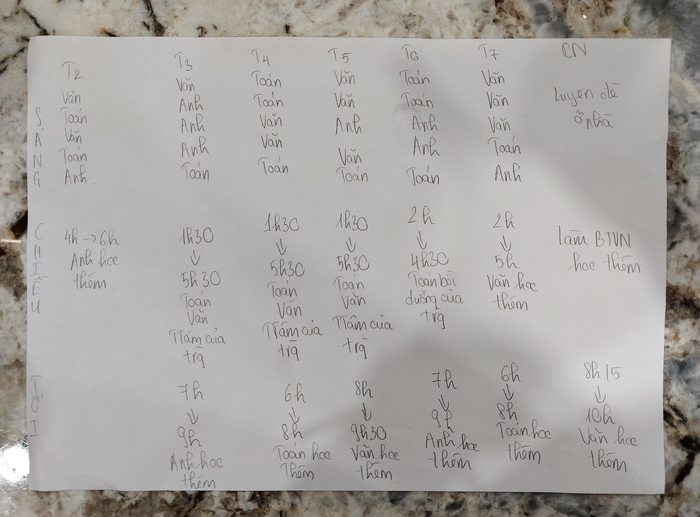 T2 T3 T4 T5 T6 T7 CN
Văn Văn Toán Văn Toán Văn Luyện đề
Toán Anh Toán Văn Toán Văn ở nhà
Văn Anh Văn Anh Anh Văn
Toán Anh Văn Văn Anh Toán
Anh Toán Toán Toán Toán Anh
SÁNG
CHIỀU
4h → 6h
Anh học
thêm.
1h30
↓
5h30
Toán
Văn
Tlâm của
trg
1h30
↓
5h30
Toán
Văn
Tlâm của
trg
1h30
↓
5h30
Toán
Văn
Tlâm của
trg
2h
↓
4h30
Toán bồi
dưỡng của
trg
2h
↓
5h
Văn học
thêm
Làm BTVN
học thêm
TỐI
7h
↓
9h
Anh học
thêm
6h
↓
8h
Toán học
Thêm
8h
↓
9h30
Văn học
thêm
7h
↓
9h
Anh học
thêm
6h
↓
8h
Toán học
thêm
8h15
↓
10h
Văn học
thêm